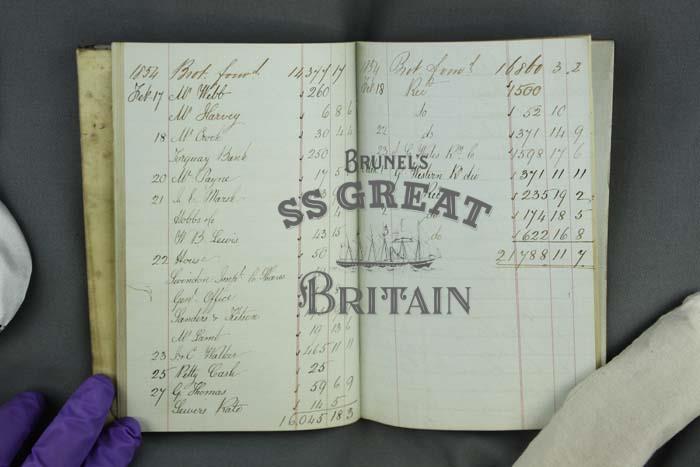 1854 Brot. forwd. 14,377 17
Feb 17 Mr Webb 260
Mr Harvey 6 8 6
18 Mr Crook 30 4 4
Torquay Bank 250
20 Mr Payne 17 5
21 Marsh
Dobbs 4
W B Lewis 43 15
22 House 50
Swindon Impt. Co Shares
Genl. Office
Sanders & Kitson
Mr Lamb 19 13 6
23 Walker 465 11 11
25 Petty Cash 25
27 G Thomas 59 6 9
Sewers Rate 14 5
16,045 18 3
1854 Brot. forwd. 16860 3 2
Feb 18 4500
do 52 10
22 do 371 14 9
23 Wales 598 17 6
G Western 371 11 11
235 19 2
2 174 18 5
do 622 16 8
21788 11 7
BRUNEL'S
SS GREAT
BRITAIN